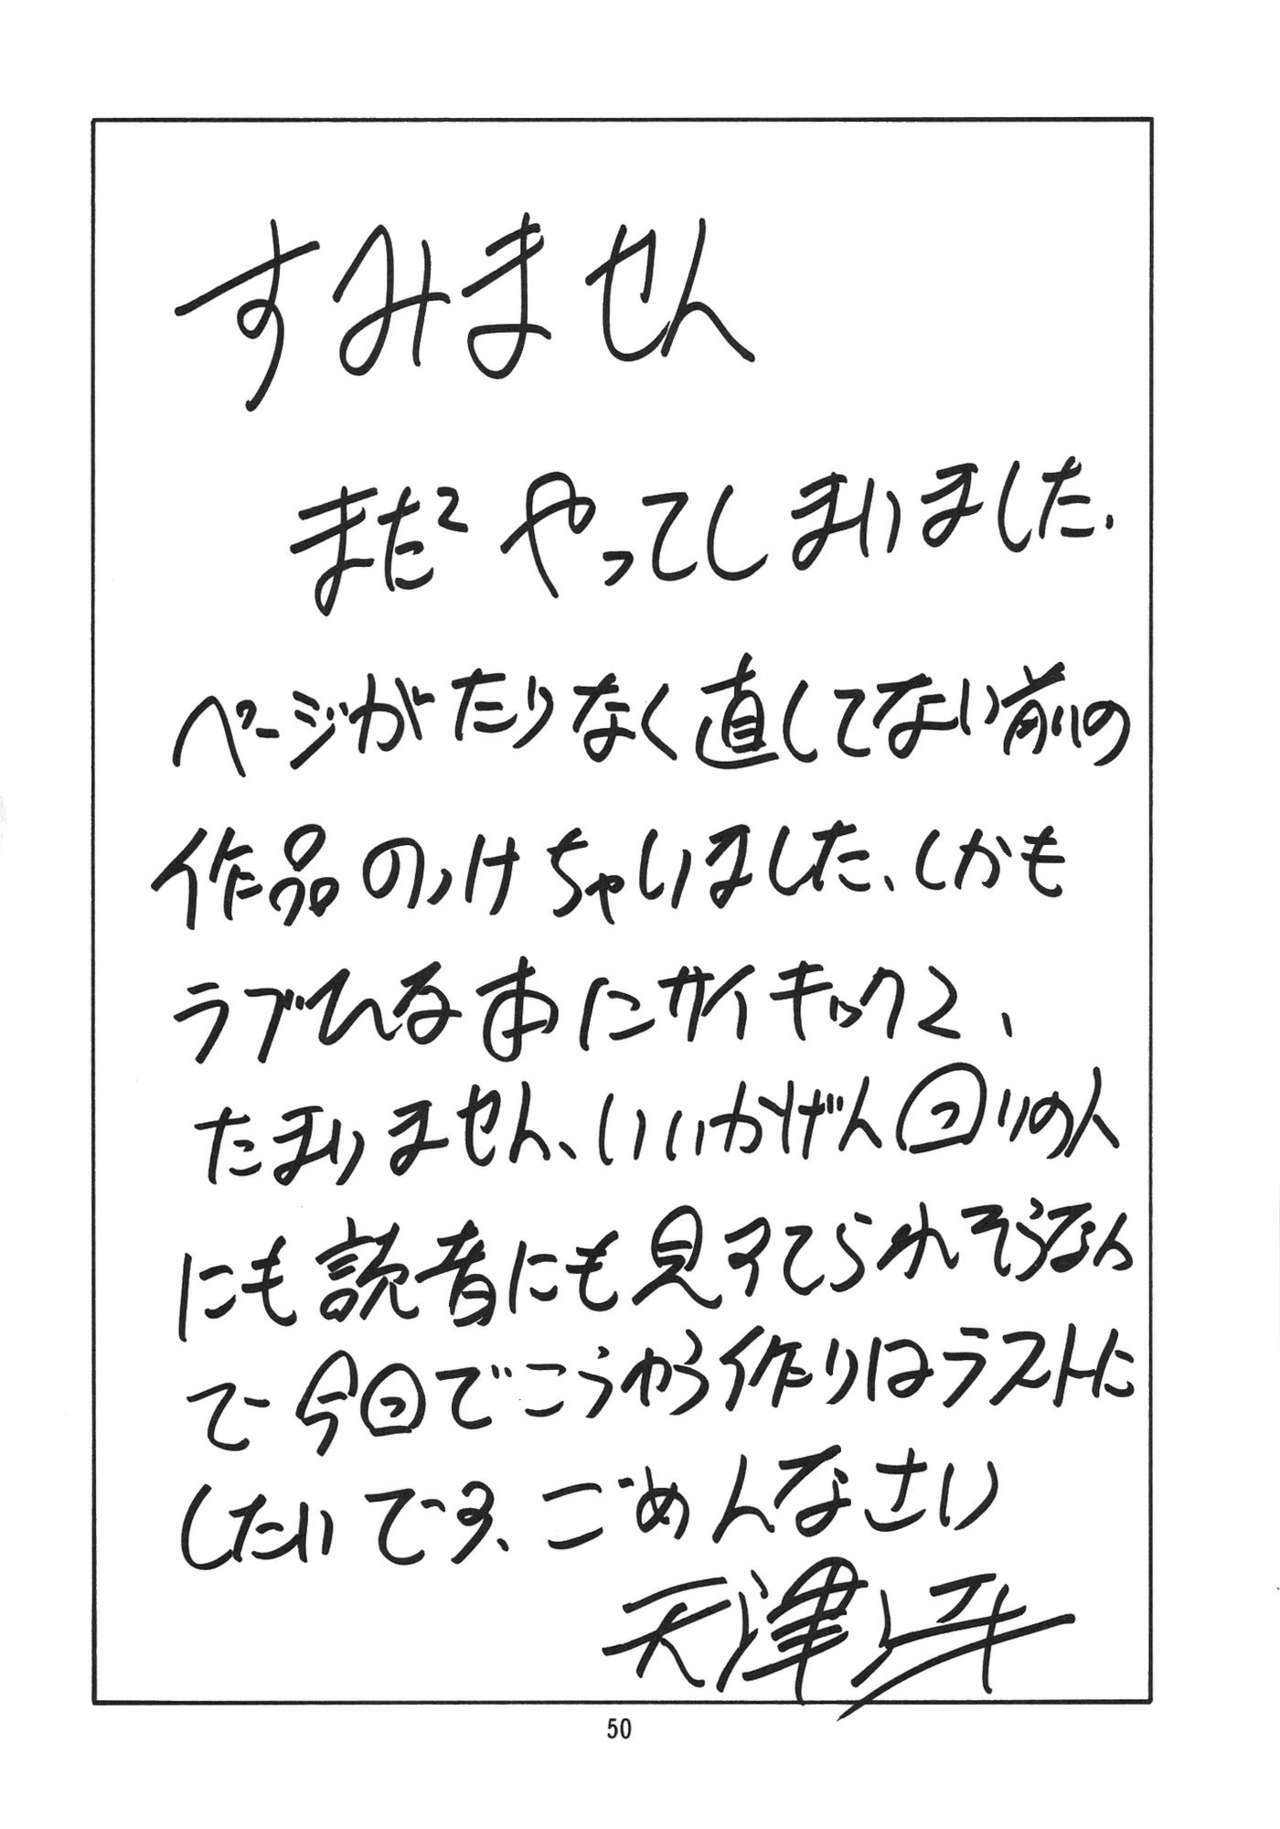 すみません
まだ² やってしまいました、
ページがたりなく直してない前の
作品のっけちゃいました、しかも
ラブひな本にサイキック2、
たまりません、いいかげん回りの人
にも読者にも見すてられそうなん
で今回でこうゆう作りはラストに
したいです、ごめんなさい
天津
50